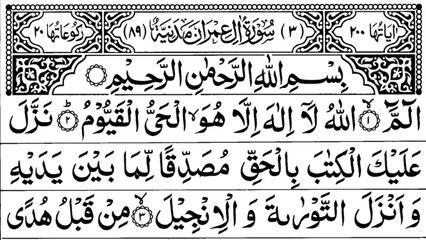 اٰیَاتُهَا ۲۰۰ (۳) سُوْرَةُ اٰلِ عِمْرٰنَ مَدَنِیَّةٌ (۸۹) رُكُوْعَاتُهَا ۲۰
بِسْمِ اللّٰهِ الرَّحْمٰنِ الرَّحِیْمِ
الٓمَّٓ ۱ اللّٰهُ لَاۤ اِلٰهَ اِلَّا هُوَ ۙ الْحَیُّ الْقَیُّوْمُ ۲ نَزَّلَ
عَلَیْكَ الْكِتٰبَ بِالْحَقِّ مُصَدِّقًا لِّمَا بَیْنَ یَدَیْهِ
وَ اَنْزَلَ التَّوْرٰىةَ وَ الْاِنْجِیْلَ ۳ مِنْ قَبْلُ هُدًی